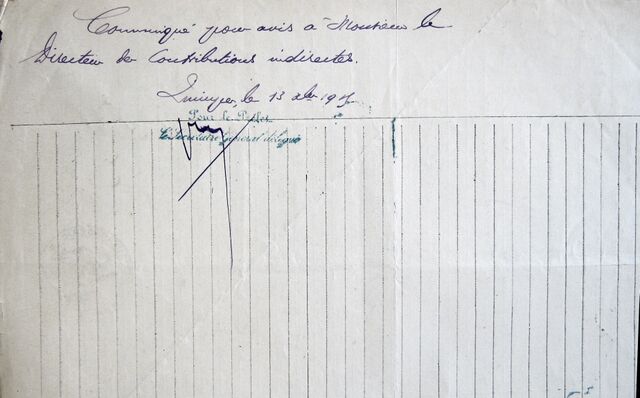 Communiqué pour avis à Monsieur le
Directeur des Contributions indirectes.
Quimper, le 13 xbre
Pour le Préfet
Le Secrétaire Général délégué